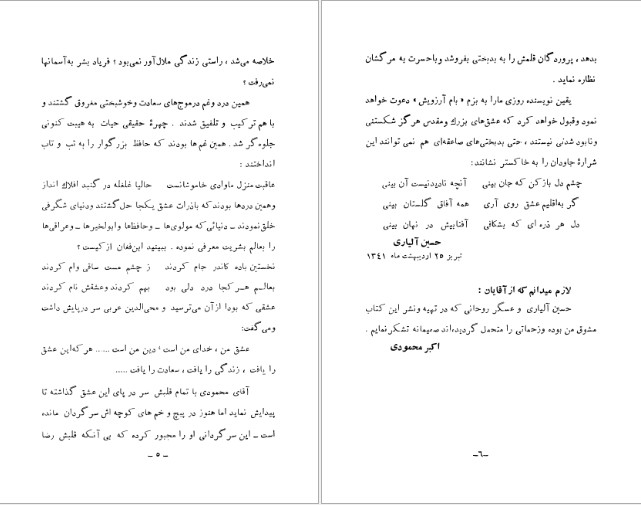 خلاصه می‌شد ، راستی زندگی ملال‌آور نمی‌بود ؟ فریاد بشر به‌آسمانها
نمی‌رفت ؟
همین درد وغم درموج‌های سعادت وخوشبختی مغروق گشتند و
با هم ترکیب و تلفیق شدند . چهرهٔ حقیقی حیات به هیبت کنونی
جلوه گر شد . همین غم‌ها بودند که حافظ بزرگوار را به تب و تاب
انداختند :
عاقبت منزل ماوادی خاموشانست حالیا غلغله در گنبد افلاک انداز
وهمین دردها بودند که باذرات عشق یکجا حل گشتند ودنیای شگرفی
خلق نمودند ـ دنیائی که مولوی‌ها ـ وحافظ‌ها وابولخیرها ـ وعراقی‌ها
را بعالم بشریت معرفی نموده . ببینید این‌فغان از کیست ؟
نخستین باده کاندر جام کردند ز چشم مست ساقی وام کردند
بعالم هر کجا درد دلی بود بهم کردند وعشقش نام کردند
عشقی که بودا از آن می‌ترسید و محی‌الدین عربی سر درپایش داشت
ومی‌گفت:
عشق من ، خدای من است ؛ دین من است ..... هر که‌این عشق
را یافت ، زندگی را یافت ، سعادت را یافت .....
آقای محمودی با تمام قلبش سر در پای این عشق گذاشته تا
پیدایش نماید اما هنوز در پیچ و خم های کوچه اش سر گردان مانده
است ـ این سر گردانی او را مجبور کرده که بی آنکه قلبش رضا
ـ ۵ ـ
بدهد ، پروردگان قلمش را به بدبختی بفروشد وباحسرت به مرگشان
نظاره نماید .
یقین نویسنده روزی مارا به بزم « بام آرزویش » دعوت خواهد
نمود وقبول خواهد کرد که عشق‌های بزرگ ومقدس هرگز شکستنی
ونابود شدنی نیستند ، حتی بدبختی‌های صاعقه‌ای هم نمی توانند این
شرارهٔ جاودان را به خاکستر نشانند :
چشم دل باز کن که جان بینی آنچه نادیدنیست آن بینی
گر به‌اقلیم عشق روی آری همه آفاق گلستان بینی
دل هر ذره ای که بشکافی آفتابیش در نهان بینی
حسین آلیاری
تبریز ۲۵ اردیبهشت ماه ۱۳۴۱
لازم میدانم که از آقایان :
حسین آلیاری و عسگر روحانی که در تهیه ونشر این کتاب
مشوق من بوده وزحماتی را متحمل گردیده‌اند صمیمانه تشکرنمایم .
اکبر محمودی
ـ۶ـ